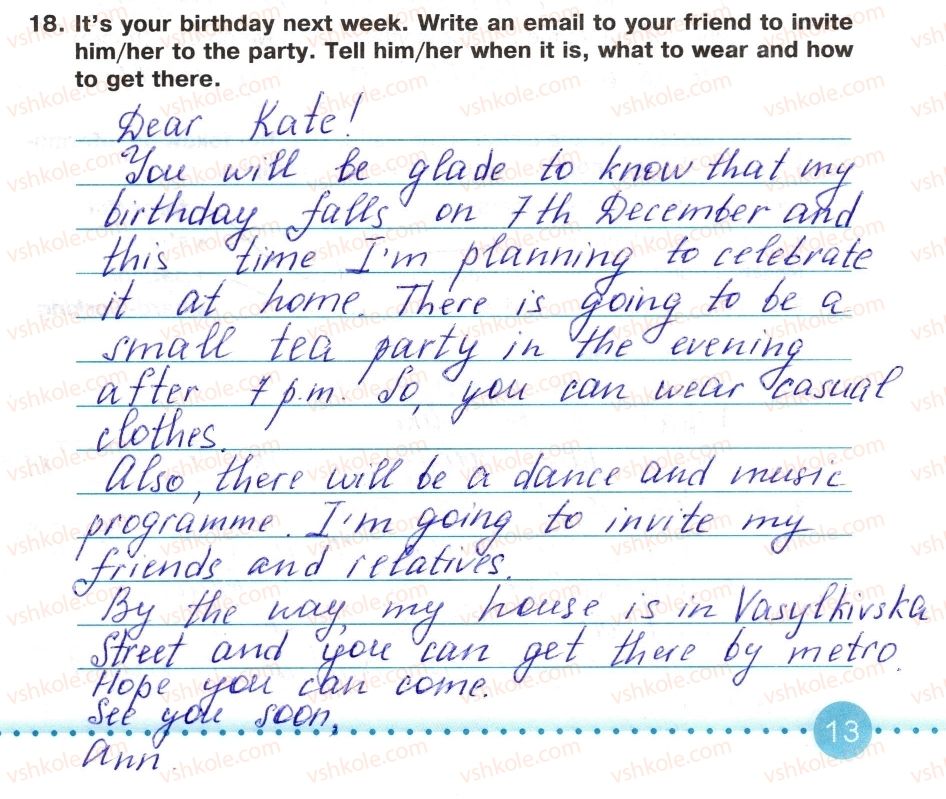 18. It's your birthday next week. Write an email to your friend to invite
him/her to the party. Tell him/her when it is, what to wear and how
to get there.
Dear Kate!
You will be glade to know that my
birthday falls on 7th December and
this time I'm planning to celebrate
it at home. There is going to be a
small tea party in the evening
after 7 p.m. So, you can wear casual
clothes.
Also, there will be a dance and music
programme. I'm going to invite my
friends and relatives.
By the way, my house is in Vasylkivska
Street and you can get there by metro.
Hope you can come.
See you soon,
Ann.
13
vshkole.com